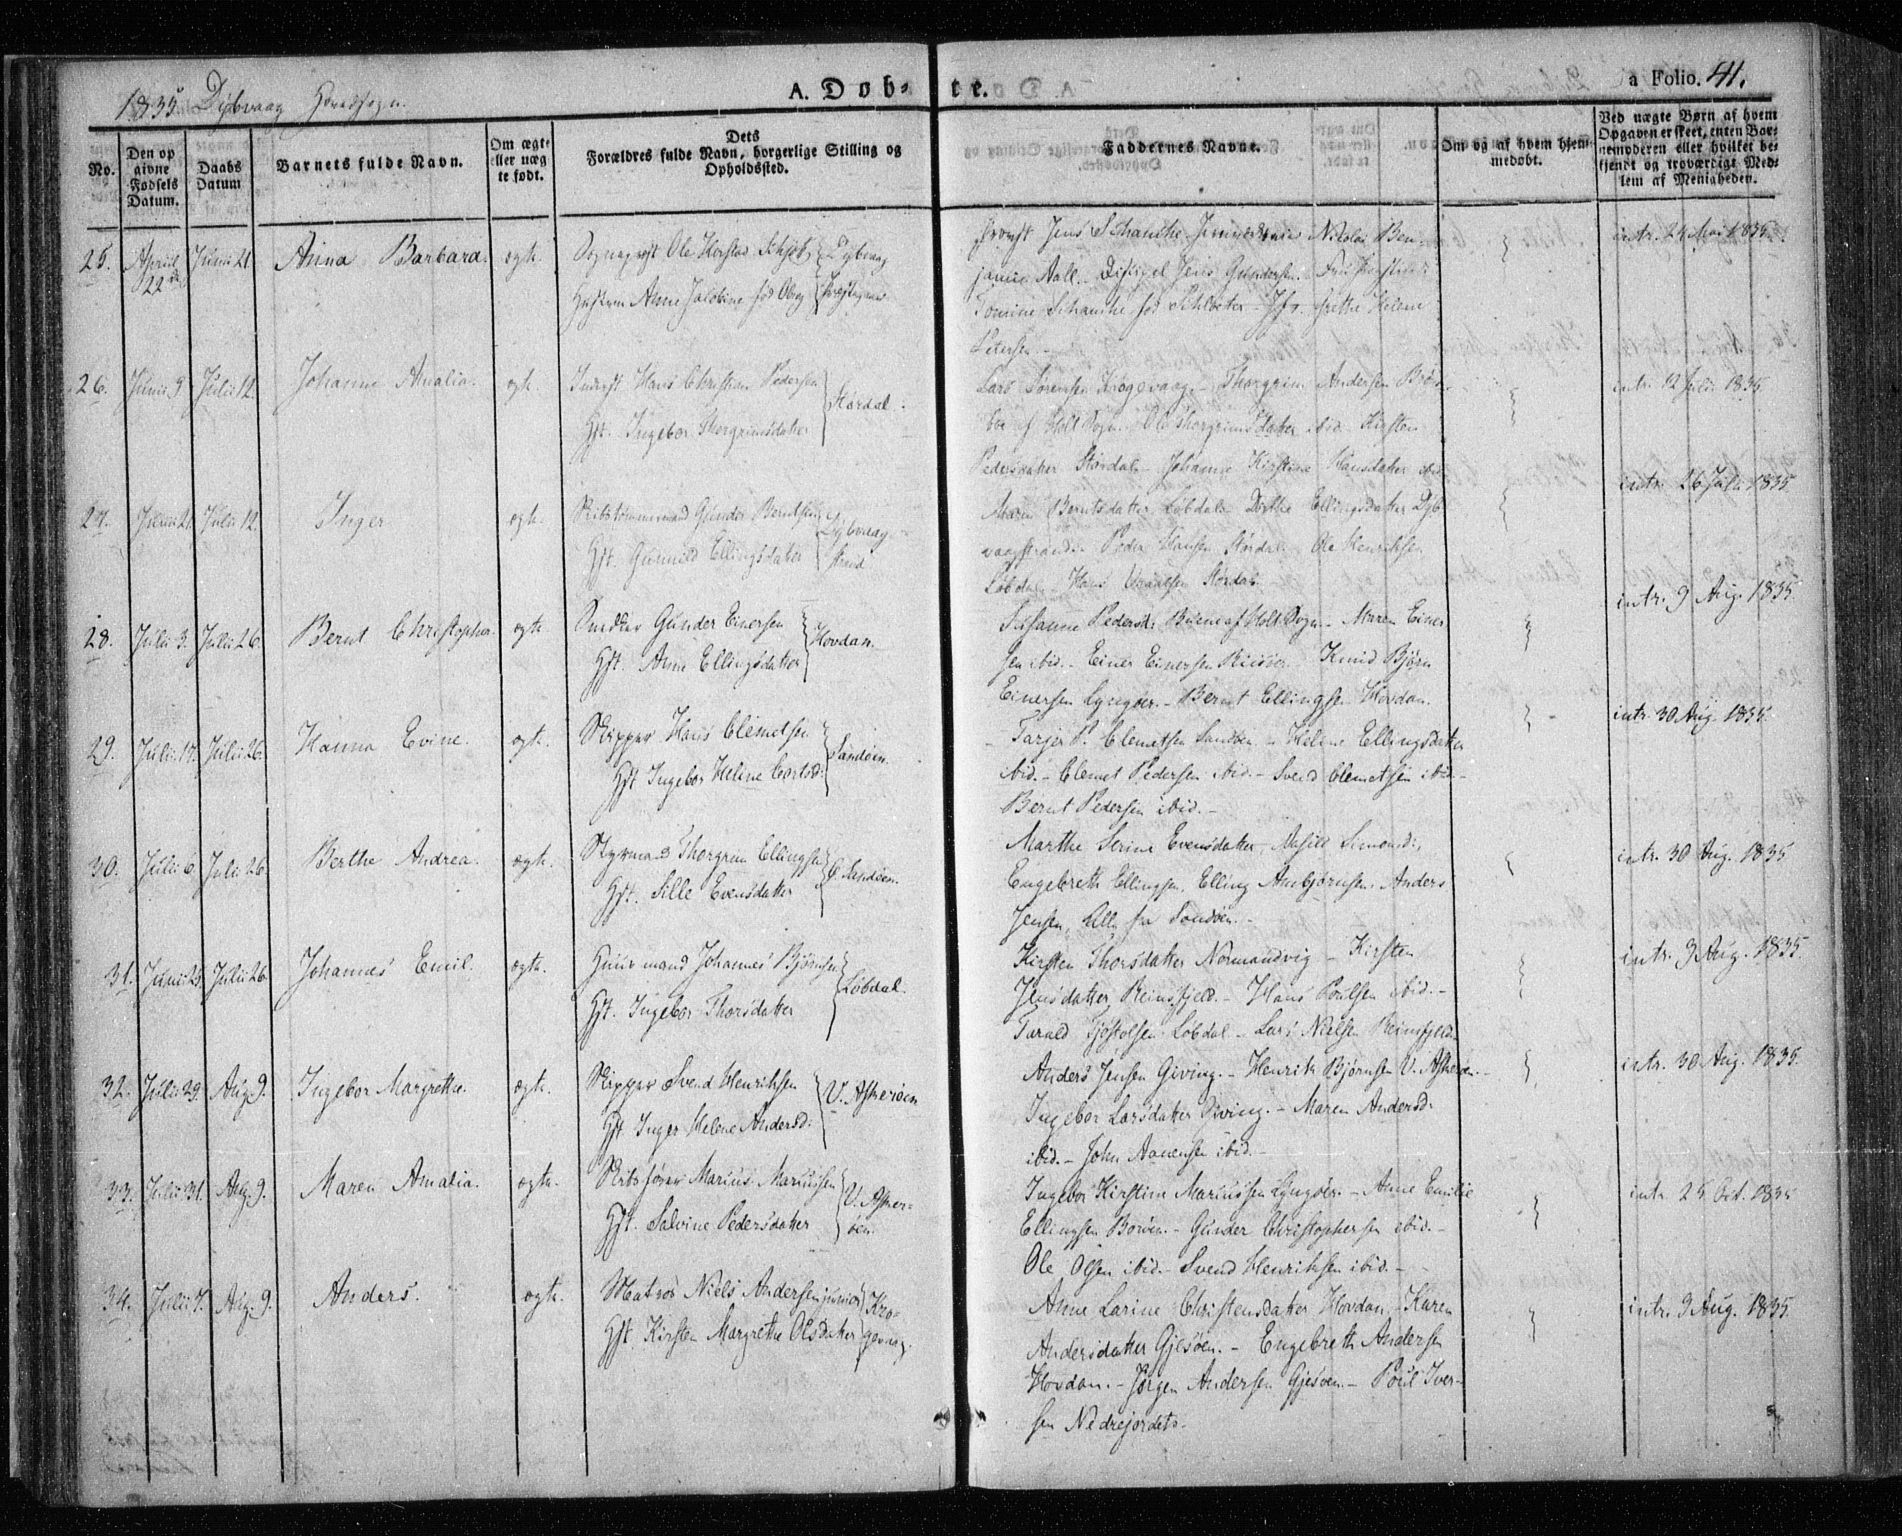 1835 Dybvaag Hovedsogn.
A. Døbte.
a Folio. 41.
No.
Den opgivne Fødsels Datum.
Daabs Datum
Barnets fulde Navn.
Om ægte eller uægte født.
Dets Forældres fulde Navn, borgerlige Stilling og Opholdssted.
Faddernes Navne.
Om og af hvem hjemmedøbt.
Ved uægte Børn af hvem Opgaven er skeet, enten Barnemoderen eller hvilket bekjendt og troværdigt Medlem af Menigheden.
25. April 22de Junii 21. Anna Barbara. ægte. Ole Dybvaag
Hustrue Anne Jacobine fød
Provst Jens Schanche Nicolai Ben-
jamin Aall. Jens Gundersen.
Tomine Schanche fød Jfr. Grethe Helene
Petersen.
intr. 24 Mai 1835.
26. Junii 9. Julii 12. Johanne Amalia. ægte. Hans Christian Pedersen Størdal.
Hst. Ingebor Thorgrimsdatter
Lars Sørensen Krogevaag. Thorgrim Andersen
af Holt Sogn. Ole Thorgrimsdatter ibid. Kirsten
Pedersdatter Størdal. Johanne Kirstine Hansdatter ibid.
intr. 12 Julii 1835
27. Junii 21. Julii 12. Inger ægte. Gunder Berntsen Dybvaag-
Hst. Gunnild Ellingsdatter strand
Maren Berntsdatter Løbdal. Dorthe Ellingsdatter Dyb-
vaagstrand. Peder Hansen Størdal. Ole Henriksen
Løbdal. Hans Størdal.
intr. 26 Julii 1835
28. Julii 3. Julii 26. Bernt Christopher. ægte. Gunder Einersen Hovdan.
Hst. Anne Ellingsdatter
Susanne Pedersd: af Holt Sogn. - Maren Einer-
sen ibid. - Einer Einersen Knud Bjørn
Einersen Lyngøer. - Bernt Ellingsen Hovdan.
intr. 9 Aug. 1835
29. Julii 17. Julii 26. Hanna Evine. ægte. Skipper Hans Clemetsen Sandøen.
Hst Ingebor Helene
- Tarjer P. Clemetsen Sandøen. - Helene Ellingsdatter
ibid. - Clemet Pedersen ibid. - Svend Clemetsen ibid. -
Bernt Pedersen ibid. -
intr. 30 Aug. 1835.
30. Julii 6. Julii 26. Berthe Andrea. ægte. Styrmand Thorgrim Ellingsen Sandøen.
Hst. Sille Evensdatter
Marthe Serine Evensdatter, Simonsd:,
Engebreth Ellingsen. Elling Anbjørnsen. Anders
Jensen, Alle fra Sandøen. -
intr. 30 Aug. 1835
31. Junii Julii 26. Johannes Emil. ægte. Huusmand Johannes Bjørnsen Løbdal.
Hst. Ingebor Thorsdatter
Kirsten Thorsdatter Normandvig - Kirsten
Jensdatter Reinsfjeld. - Hans Poulsen ibid. -
Tarald Tjøstolsen Løbdal - Lars Nielsen Reinsfjeld.
intr. 9 Aug. 1835.
32. Julii 29. Aug. 9. Ingebor Margrethe. ægte. Skipper Svend Henriksen V. Askerøen
Hst Inger Helene Andersd:
Anders Jensen Giving. - Henrik Bjørnsen V. Askerøen. -
Ingebor Larsdatter Giving. - Maren Andersd:
ibid. - John Aanensen ibid. -
intr. 30 Aug. 1835.
33. Julii 31. Aug. 9. Maren Amalia. ægte. Skibsfører Marius Mariussen V. Asker-
Hst. Salvine Pedersdatter øen.
Ingebor Kirstine Mariussen Lyngøer. - Anne Emilie
Ellingsen Borøen. - Gunder Christophersen ibid. -
Ole Olsen ibid. - Svend Henriksen ibid. -
intr. 25 Oct. 1835
34. Julii 7. Aug. 9. Anders. ægte. Matros Niels Andersen junior Kro-
Hst. Kirsten Margrethe Olsdatter gevaag.
Anne Larine Christensdatter Hovdan, - Karen
Andersdatter Gjesøen. - Engebreth Andersen
Hovdan. - Jørgen Andersen Gjesøen. - Poul Iver-
sen Nedrejordet. -
intr. 9 Aug. 1835.